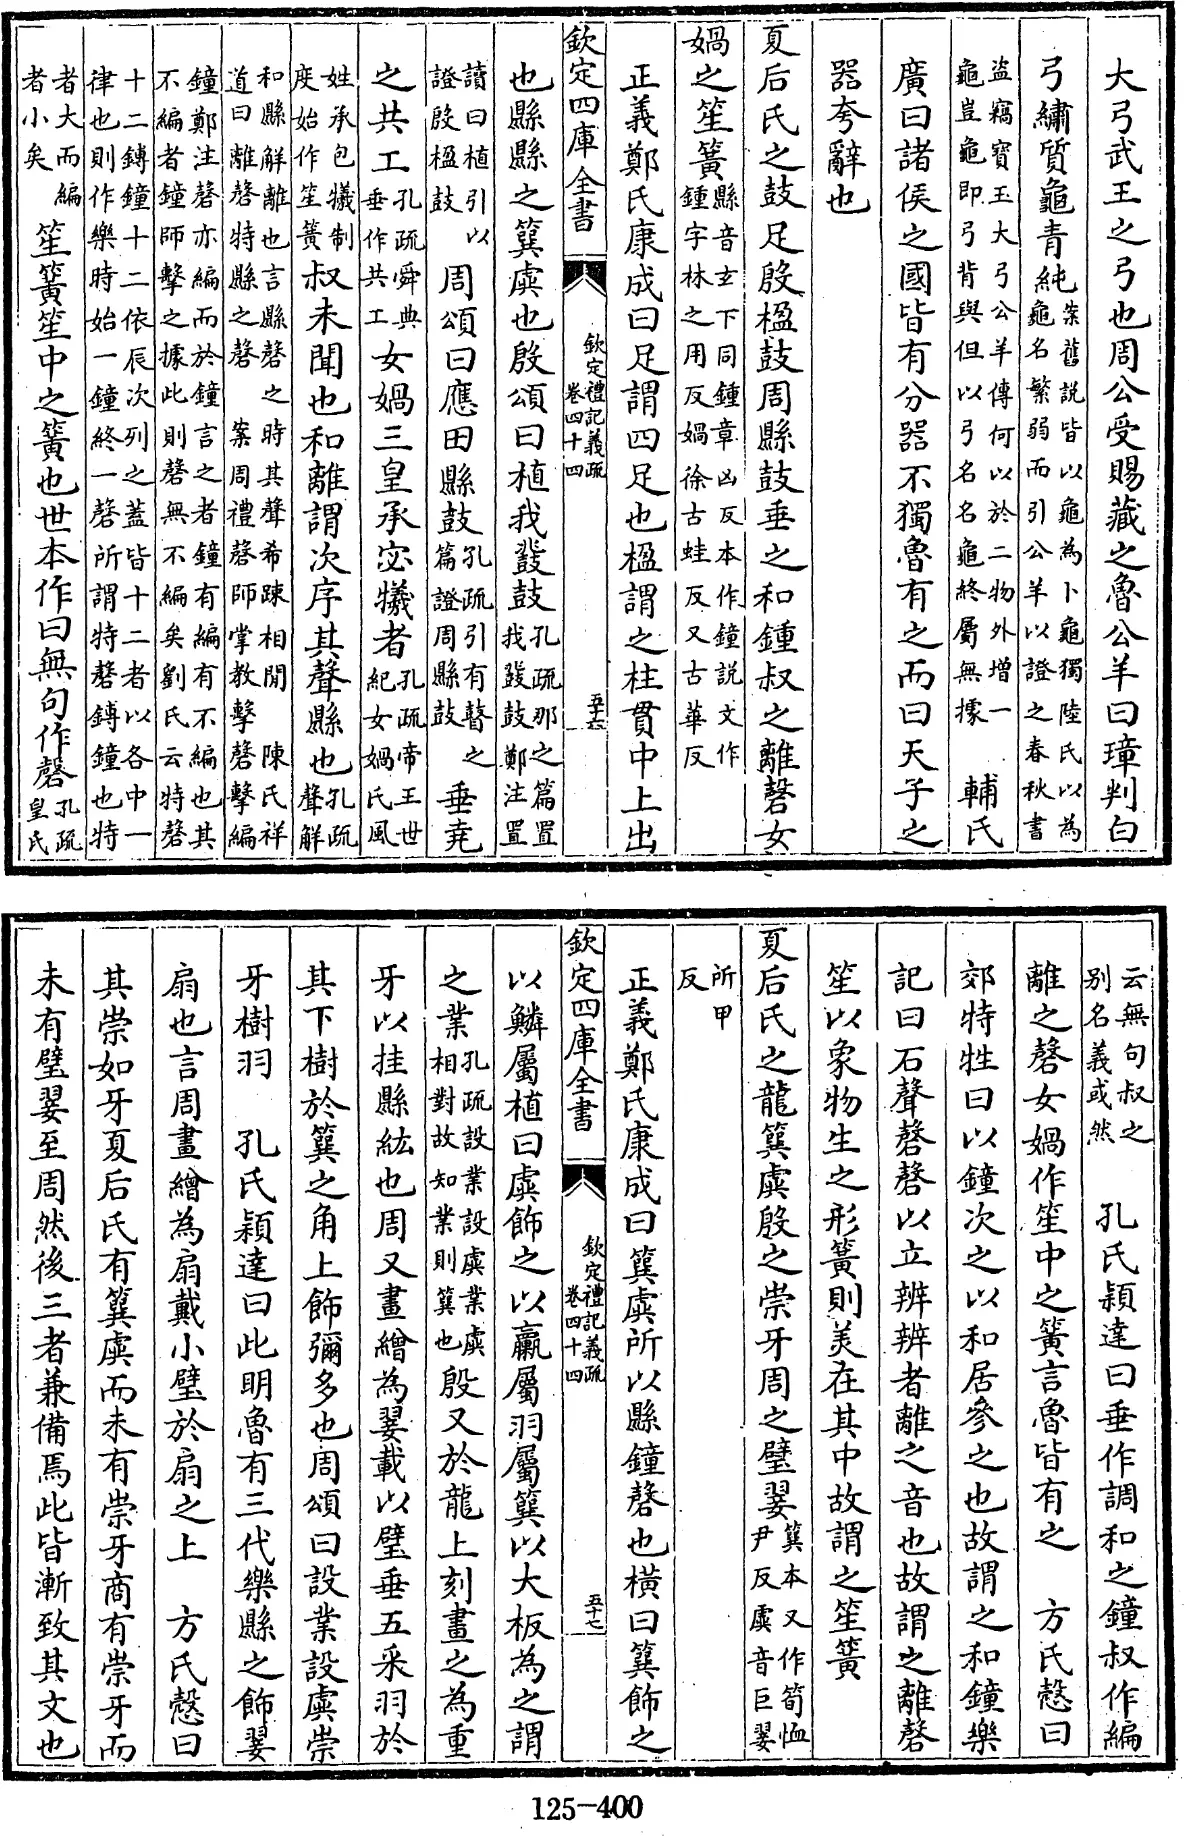 大弓武王之弓也周公受賜藏之魯公羊曰璋判白
弓繡質龜青純案舊說皆以龜為卜龜獨陸氏以為龜名繁弱而引公羊以證之春秋書
盜竊寶玉大弓公羊傳何以於二物外增一龜豈龜即弓背與但以弓名名龜終屬無據 輔氏
廣曰諸侯之國皆有分器不獨魯有之而曰天子之
器夸辭也
夏后氏之鼓足殷楹鼓周縣鼓垂之和鍾叔之離磬女
媧之笙簧縣音玄下同鍾章凶反本作鐘說文作鍾字林之用反媧徐古蛙反又古華反
正義鄭氏康成曰足謂四足也楹謂之柱貫中上出
欽定四庫全書 欽定禮記義疏 卷四十四 五十六
也縣縣之簨虡也殷頌曰植我鼗鼓孔疏那之篇置我鼗鼓鄭注置
讀曰植引以證殷楹鼓 周頌曰應田縣鼓孔疏引有瞽之篇證周縣鼓 垂堯
之共工孔疏舜典垂作共工 女媧三皇承宓犧者孔疏帝王世紀女媧氏風
姓承包犧制度始作笙簧 叔未聞也和離謂次序其聲縣也孔疏聲解
和縣解離也言縣磬之時其聲希疎相閒 陳氏祥道曰離磬特縣之磬 案周禮磬師掌教擊磬擊編
鐘鄭注磬亦編而於鐘言之者鐘有編有不編也其不編者鐘師擊之據此則磬無不編矣劉氏云特磬
十二鎛鐘十二依辰次列之蓋皆十二者以各中一律也則作樂時始一鐘終一磬所謂特磬鎛鐘也特
者大而編者小矣 笙簧笙中之簧也世本作曰無句作磬孔疏皇氏
云無句叔之別名義或然 孔氏穎達曰垂作調和之鐘叔作編
離之磬女媧作笙中之簧言魯皆有之 方氏慤曰
郊特牲曰以鐘次之以和居參之也故謂之和鐘樂
記曰石聲磬磬以立辨辨者離之音也故謂之離磬
笙以象物生之形簧則美在其中故謂之笙簧
夏后氏之龍簨虡殷之崇牙周之璧翣簨本又作筍恤尹反虡音巨翣
所甲反
正義鄭氏康成曰簨虡所以縣鐘磬也橫曰簨飾之
欽定四庫全書 欽定禮記義疏 卷四十四 五十七
以鱗屬植曰虡飾之以臝屬羽屬簨以大板為之謂
之業孔疏設業設虡業虡相對故知業則簨也 殷又於龍上刻畫之為重
牙以挂縣紘也周又畫繒為翣載以璧垂五采羽於
其下樹於簨之角上飾彌多也周頌曰設業設虡崇
牙樹羽 孔氏穎達曰此明魯有三代樂縣之飾翣
扇也言周畫繒為扇戴小璧於扇之上 方氏慤曰
其崇如牙夏后氏有簨虡而未有崇牙商有崇牙而
未有璧翣至周然後三者兼備焉此皆漸致其文也
125-400